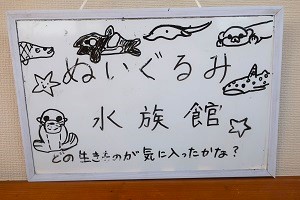 ぬいぐるみ
水族館
どの生きものが気に入ったかな？